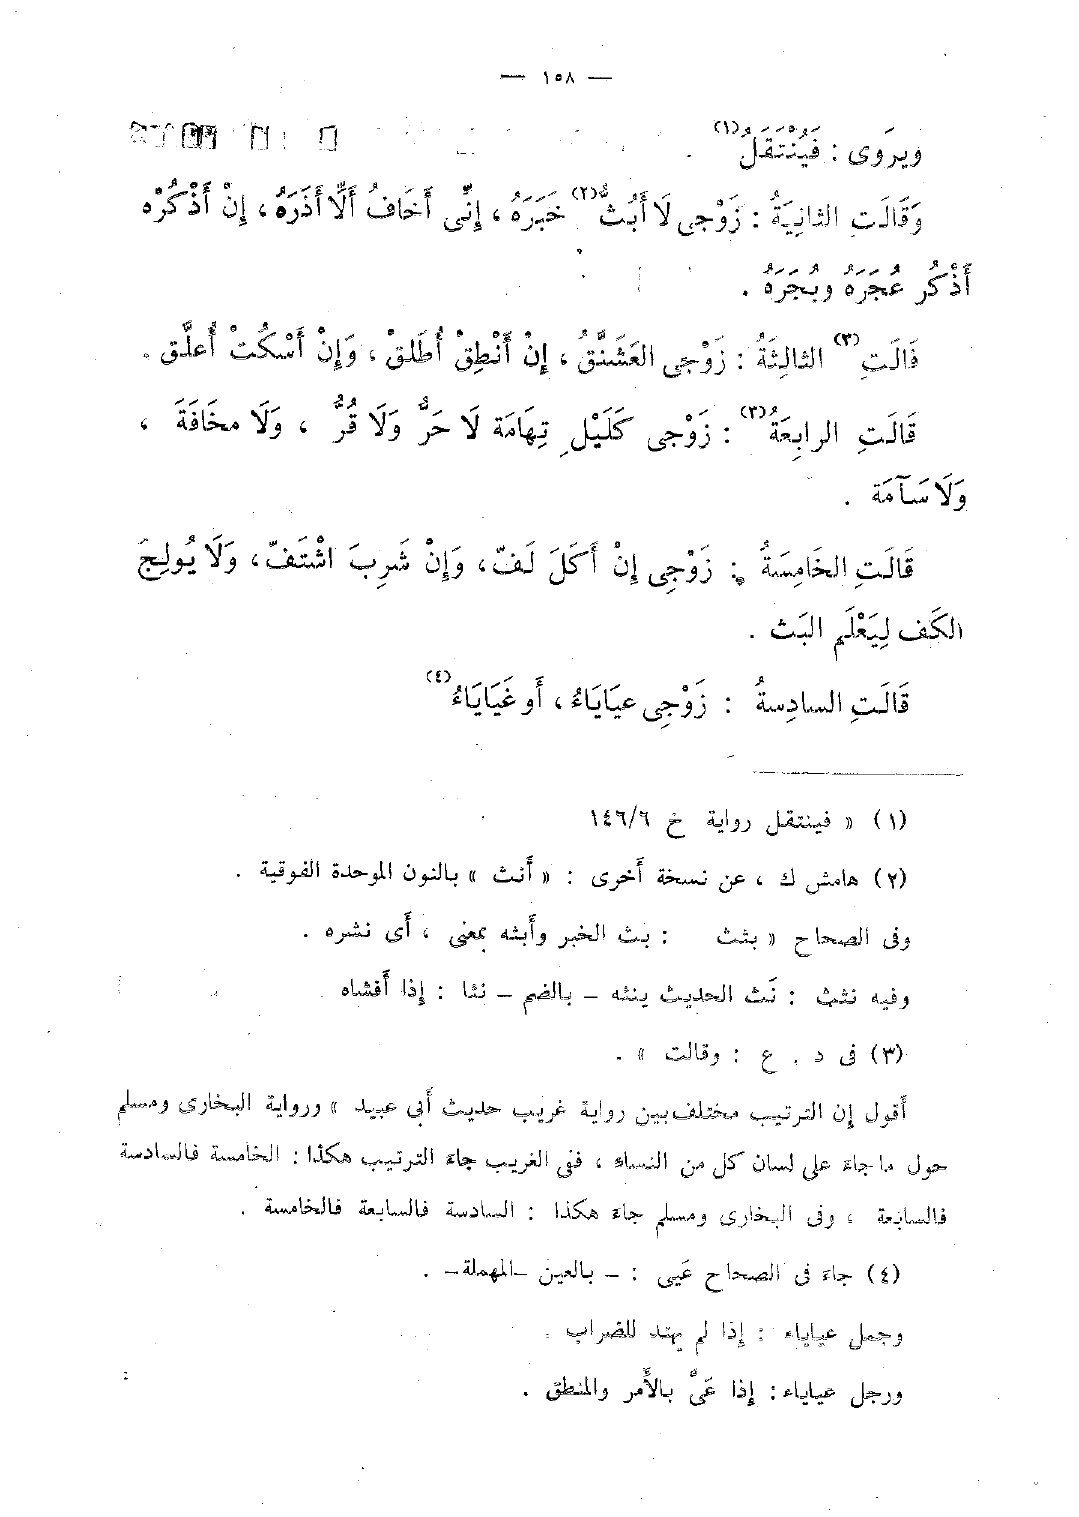 — ١٥٨ —
ويروى : فَيُنْتَقَلُ (١) .
وَقَالَتِ الثانِيَةُ : زَوْجى لَا أَبُثُّ (٢) خَبَرَهُ ، إِنِّى أَخَافُ أَلَّا أَذَرَهُ ، إِنْ أَذْكُرْه
أَذْكُر عُجَرَهُ وبُجَرَهُ .
قَالَتِ (٣) الثالِثَةُ : زَوْجى العَشَنَّقُ ، إِنْ أَنْطِقْ أُطَلقْ ، وَإِنْ أَسْكُتْ أُعلَّق .
قَالَتِ الرابِعَةُ (٣) : زَوْجى كَلَيْلِ تِهَامَة لَا حَرٌّ وَلَا قُرٌّ ، وَلَا مخَافَةَ ،
وَلَا سَآمَة .
قَالَتِ الخَامِسَةُ : زَوْجِى إِنْ أَكَلَ لَفّ ، وَإِنْ شَرِبَ اشْتَفّ ، وَلَا يُولِجَ
الكَف لِيَعْلَم البَث .
قَالَتِ السادِسةُ : زَوْجِى عيَايَاءُ ، أَو غَيَايَاءُ (٤)
(١) « فينتقل رواية خ ١٤٦/٦
(٢) هامش ك ، عن نسخة أخرى : « أنث » بالنون الموحدة الفوقية .
وفى الصحاح « بثث : بث الخبر وأبثه بمعنى ، أى نشره .
وفيه نثث : نَث الحديث ينثه – بالضم – نثا : إذا أفشاه
(٣) فى د . ع : وقالت » .
أقول إن الترتيب مختلف بين رواية غريب حديث أبى عبيد » ورواية البخارى ومسلم
حول ما جاء على لسان كل من النساء ، ففى الغريب جاء الترتيب هكذا : الخامسة فالسادسة
فالسابعة ، وفى البخارى ومسلم جاء هكذا : السادسة فالسابعة فالخامسة .
(٤) جاء فى الصحاح عَيى : – بالعين – المهملة – .
وجمل عياياء : إذا لم يهتد للضراب .
ورجل عياياء : إذا عَىَّ بالأمر والمنطق .